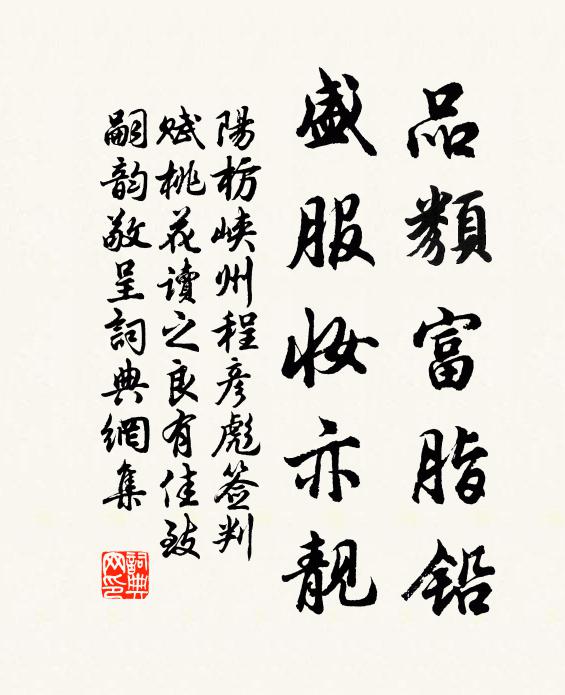 品類富脂鉛
盛服妝亦靚
陽枋峽州程彥彪簽判
賦桃花讀之良有佳致
嗣韵敬呈詞典網集
詞典
网印